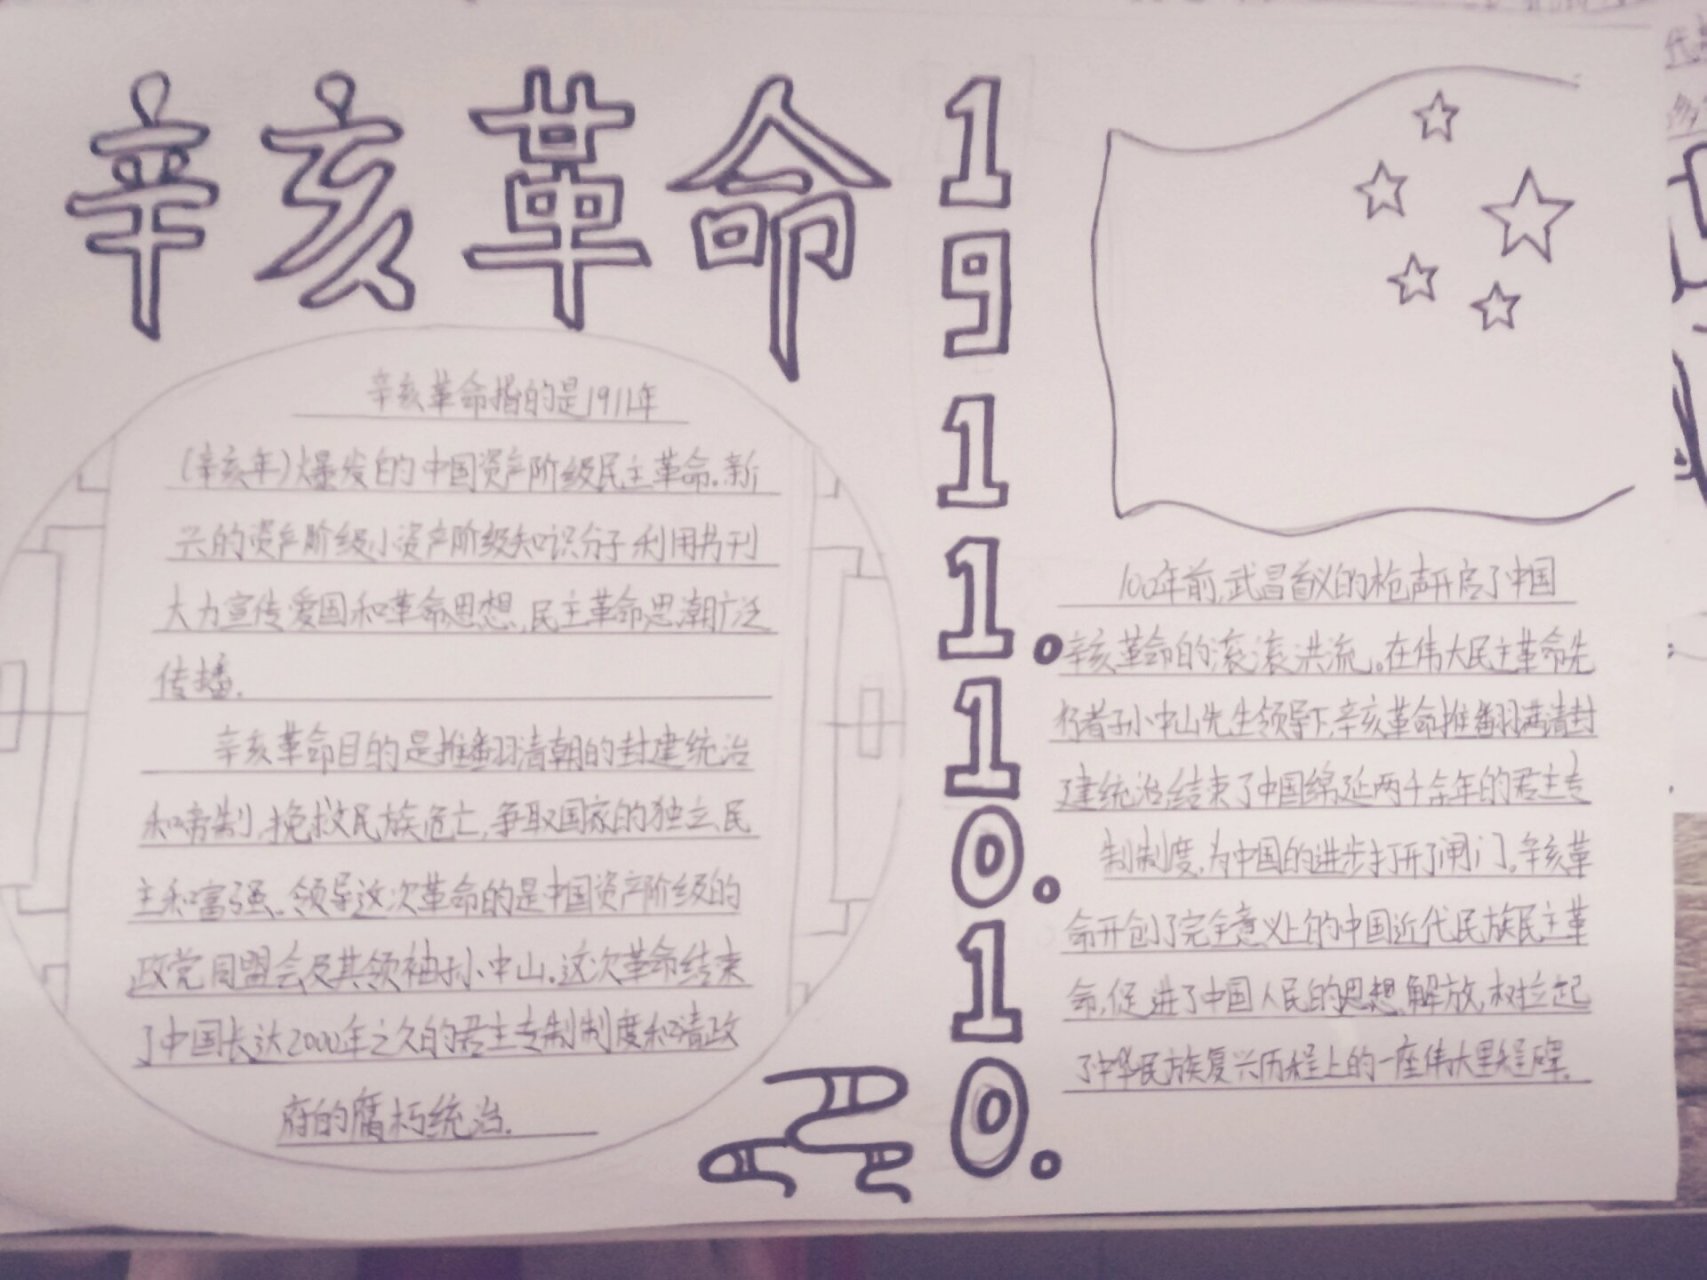 辛亥革命
1911.10.10.
辛亥革命指的是1911年
(辛亥年)爆发的中国资产阶级民主革命.新
兴的资产阶级小资产阶级知识分子利用书刊
大力宣传爱国和革命思想,民主革命思潮广泛
传播.
辛亥革命目的是推翻清朝的封建统治
和帝制,挽救民族危亡,争取国家的独立、民
主和富强。领导这次革命的是中国资产阶级的
政党同盟会及其领袖孙中山.这次革命结束
了中国长达2000年之久的君主专制制度和清政
府的腐朽统治.
100年前,武昌首义的枪声开启了中国
辛亥革命的滚滚洪流。在伟大民主革命先
行者孙中山先生领导下,辛亥革命推翻满清封
建统治,结束了中国绵延两千余年的君主专
制制度,为中国的进步打开了闸门.辛亥革
命开创了完全意义上的中国近代民族民主革
命,促进了中国人民的思想解放,树立起
了中华民族复兴历程上的一座伟大里程碑.